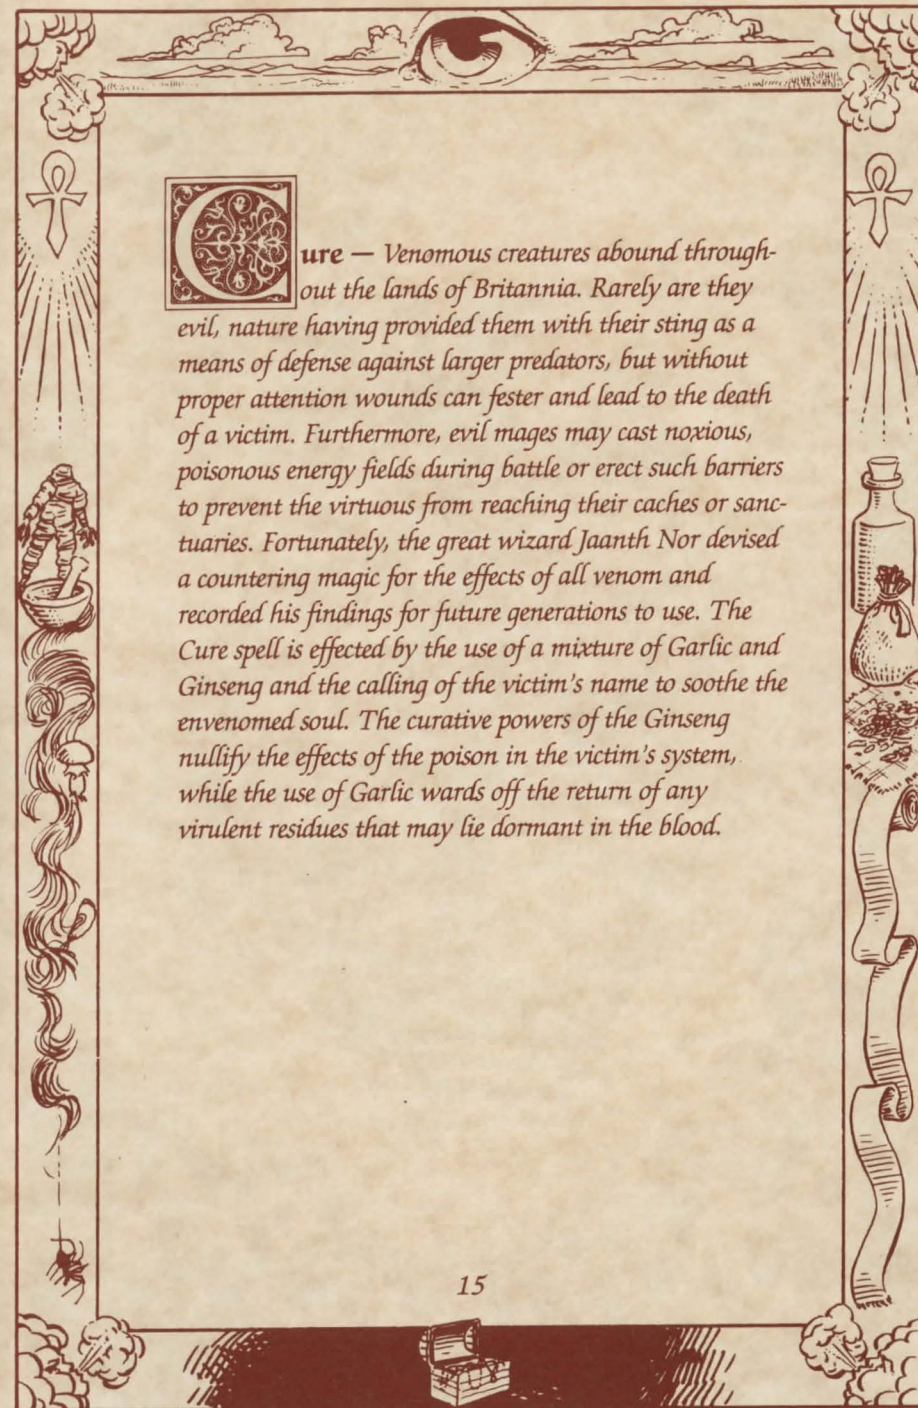 Cure — Venomous creatures abound through-
out the lands of Britannia. Rarely are they
evil, nature having provided them with their sting as a
means of defense against larger predators, but without
proper attention wounds can fester and lead to the death
of a victim. Furthermore, evil mages may cast noxious,
poisonous energy fields during battle or erect such barriers
to prevent the virtuous from reaching their caches or sanc-
tuaries. Fortunately, the great wizard Jaanth Nor devised
a countering magic for the effects of all venom and
recorded his findings for future generations to use. The
Cure spell is effected by the use of a mixture of Garlic and
Ginseng and the calling of the victim's name to soothe the
envenomed soul. The curative powers of the Ginseng
nullify the effects of the poison in the victim's system,
while the use of Garlic wards off the return of any
virulent residues that may lie dormant in the blood.
15